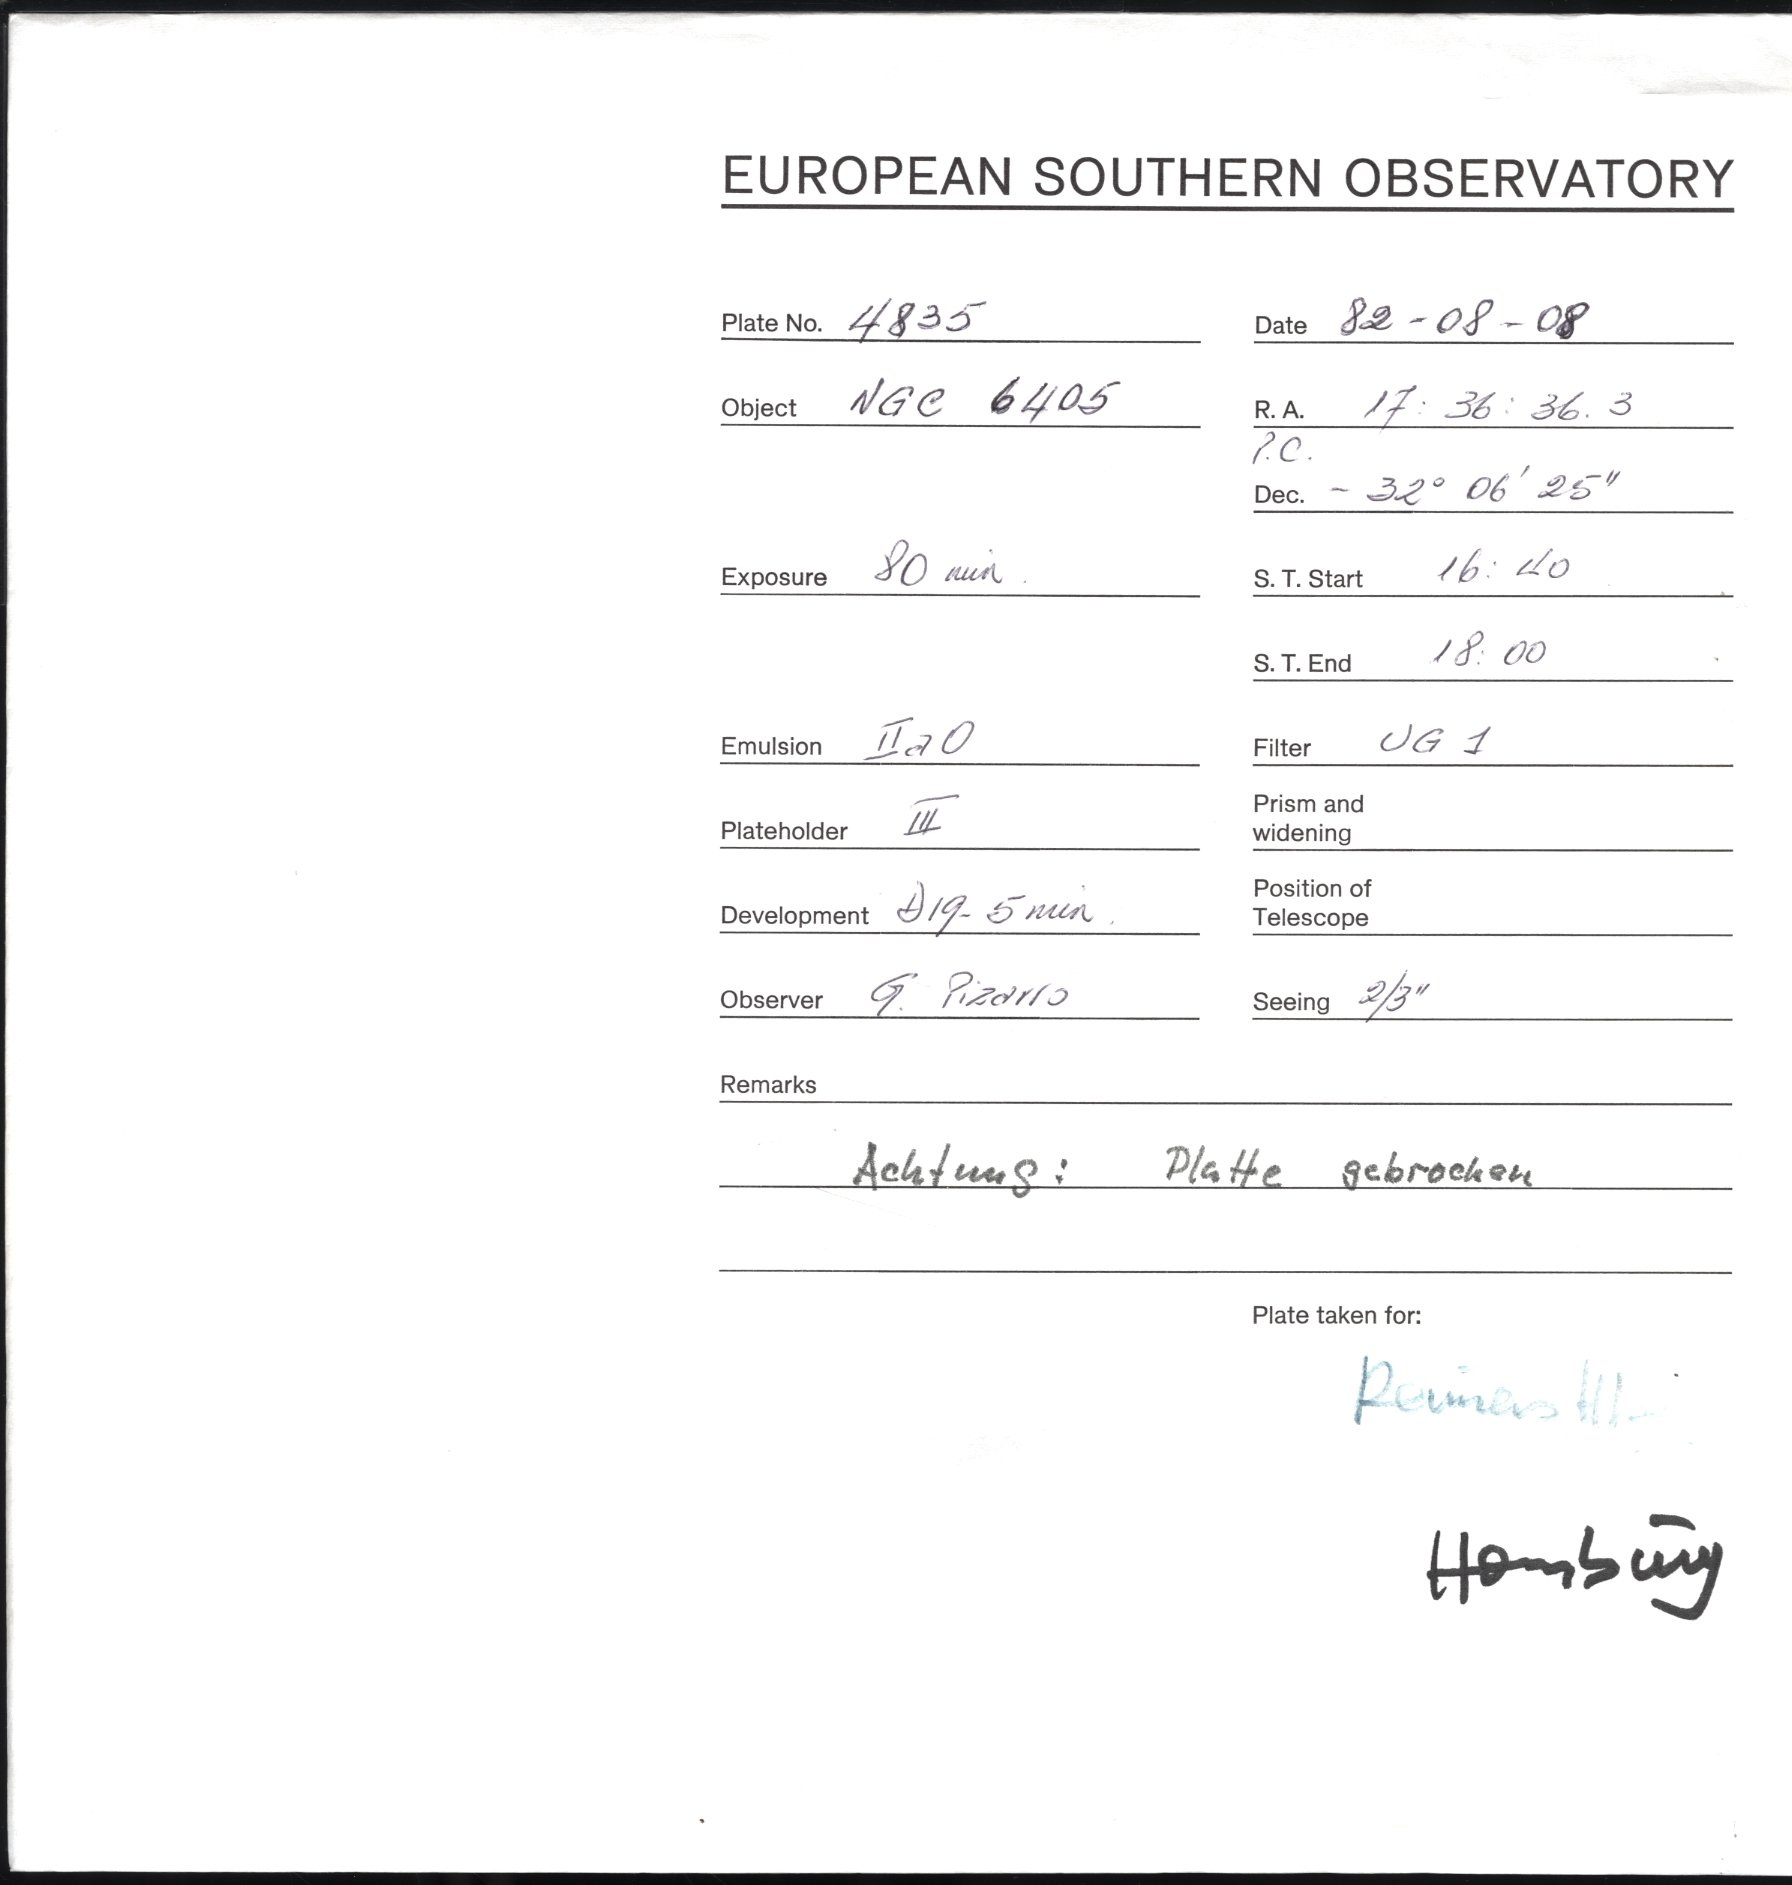 EUROPEAN SOUTHERN OBSERVATORY
Plate No. 4835 Date 82-08-08
Object NGC 6405 R. A. 17: 36: 36. 3
P.C.
Dec. - 32° 06' 25"
Exposure 80 min. S. T. Start 16: 40
S. T. End 18: 00
Emulsion IIaO Filter UG 1
Plateholder III Prism and widening
Development D19- 5 min. Position of Telescope
Observer G. Pizarro Seeing 2/3"
Remarks
Achtung: Platte gebrochen
Plate taken for:
Reimers
Hamburg